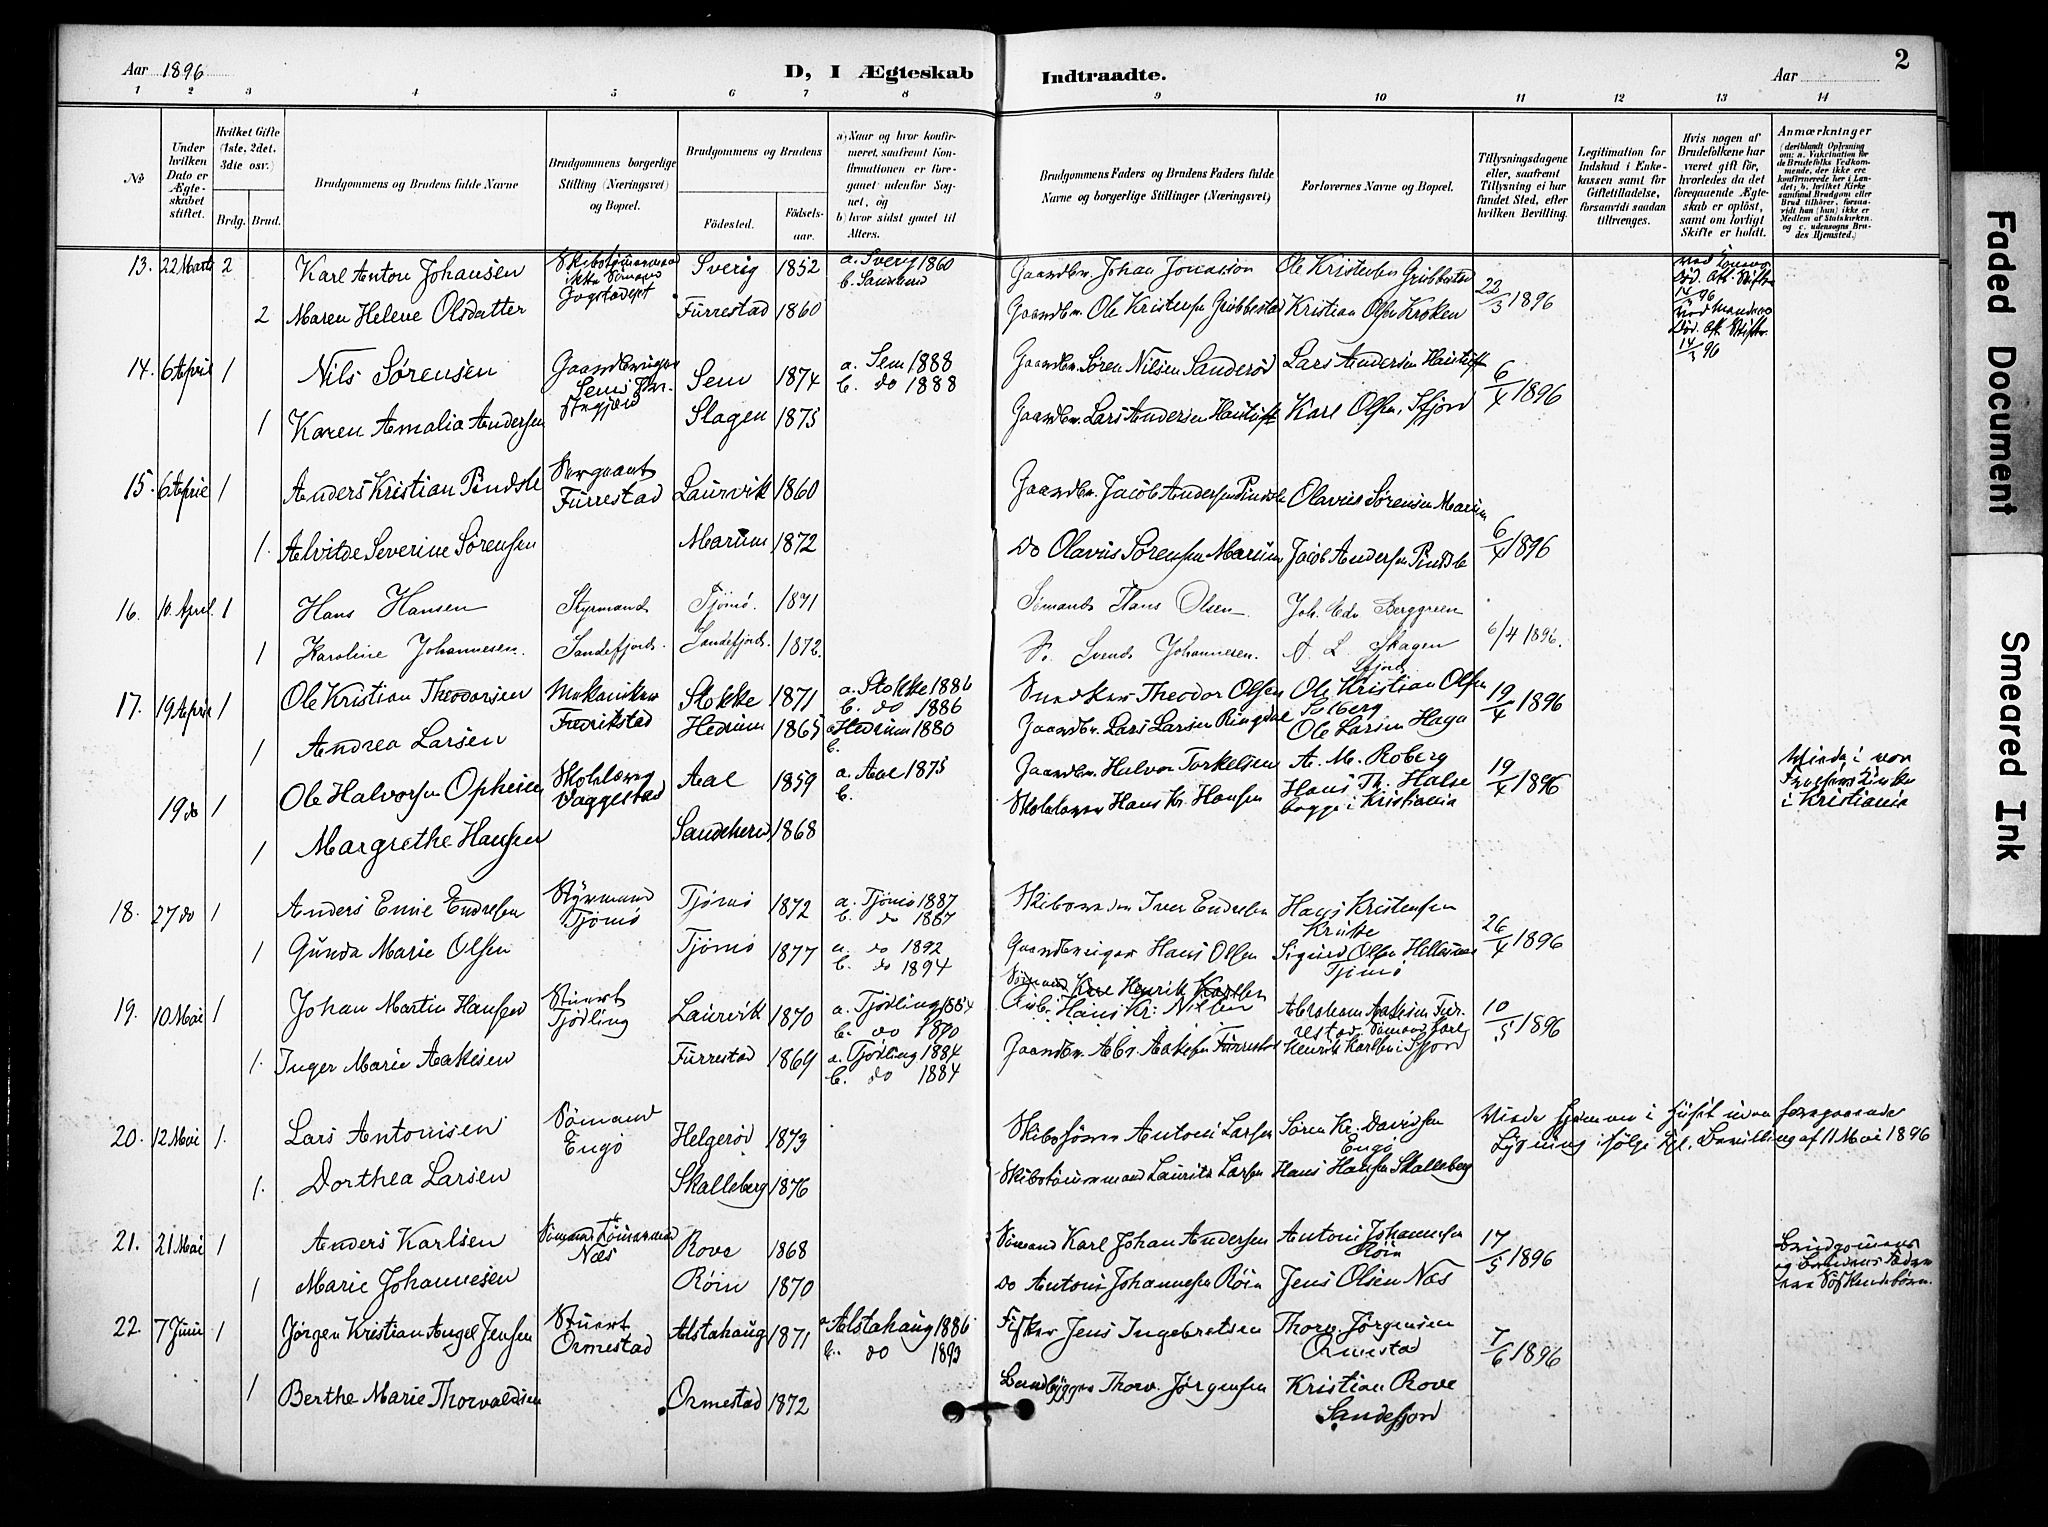 Aar 1896
D, I Ægteskab Indtraadte.
Aar
2
1 2 3 4 5 6 7 8 9 10 11 12 13 14
No
Under hvilken Dato er Ægteskabet stiftet.
Hvilket Gifte (1ste, 2det, 3die osv.)
Brdg. Brud.
Brudgommens og Brudens fulde Navne
Brudgommens borgerlige Stilling (Næringsvei) og Bopæl.
Brudgommens og Brudens
Födested.
Födselsaar.
a) Naar og hvor konfirmeret, saafremt Konfirmationen er foregaaet udenfor Sognet, og
b) hvor sidst gaaet til Alters.
Brudgommens Faders og Brudens Faders fulde Navne og borgerlige Stillinger (Næringsvei)
Forlovernes Navne og Bopæl.
Tillysningsdagene eller, saafremt Tillysning ei har fundet Sted, efter hvilken Bevilling.
Legitimation for Indskud i Enkekassen samt for Giftetilladelse, forsaavidt saadan tiltrænges.
Hvis nogen af Brudefolkene har været gift för, hvorledes da det foregaaende Ægteskab er oplöst, samt om lovligt Skifte er holdt.
Anmærkninger (deriblandt Oplysning om: a. Vakcination for de Brudefolks Vedkommende, der ikke ere konfirmerede her i Landet; b. hvilket Kirkesamfund Brudgom eller Brud tilhörer, forsaavidt han (hun) ikke er Medlem af Statskirken, og c. udensogns Brudes Hjemsted.)
13. 22 Marts 2 Karl Anton Johansen Sverig 1852 a. Sverig 1860 b. Sandeherd Gaardbr. Johan Jonasson Ole Kristensen Grubbestad 22/3 1896
2 Maren Helene Olsdatter Furrestad 1860 Gaardbr. Ole Kristensen Grubbestad Kristian Olsen Kroken
14/3 96
14. 6 April 1 Nils Sørensen Gaardbruger Sem Sem 1874 a. Sem 1888 b. do 1888 Gaardbr. Søren Nilsen Sanderød Lars Andersen 6/4 1896
1 Karen Amalia Andersen Slagen 1875 Gaardbr. Lars Andersen Karl Olsen, Sfjord
15. 6 April 1 Anders Kristian Pindsle Sergeant Furrestad Laurvik 1860 Gaardbr. Jacob Andersen Pindsle Olavus Sørensen Marum 6/4 1896
1. Alvilde Severine Sørensen Marum 1872 Do Olavus Sørensen Marum Jacob Andersen Pindsle
16. 10. April. 1 Hans Hansen Styrmand Tjömö. 1871 Sömand Hans Olsen. Joh. Edv. Berggreen
1 Karoline Johannesen. Sandefjord. Sandefjord. 1872. Svend Johannesen. A. L. Skagen Sfjord 6/4 1896.
17. 19 April 1 Ole Kristian Theodorsen Mekaniker Fredrikstad Stokke 1871 a. Stokke 1886 b. do 1886 Snedker Theodor Olsen Ole Kristian Olsen Solberg 19/4 1896
1 Andrea Larsen Hedrum 1865 a Hedrum 1880 b. Gaardbr. Lars Larsen Ringdal Ole Larsen Haga
19 do 1 Ole Halvorsen Opheim Aal 1859 a. Aal 1875 b. Gaardbr. Halvor Torkelsen A. M. Roberg 19/4 1896 Viede i vor Frelsers Kirke i Kristiania
1 Margrethe Hansen Sandeherd 1868 Skolelærer Hans Kr. Hansen Hans Th. Halse begge i Kristiania
18. 27 do 1 Anders Emil Endresen Styrmand Tjömö Tjömö 1872 a. Tjömö 1887 b. do 1887 Iver Endresen Hans Kristensen 26/4 1896
1 Gunda Marie Olsen Tjömö 1877 a. do 1892 b. do 1894 Gaardbruger Hans Olsen Sigurd Olsen Tjömö
19. 10 Mai 1 Johan Martin Hansen Stuert Tjödling Laurvik 1870 a. Tjödling 1884 b. do 1890 Sömand Karl Henrik Karlsen Arb. Hans Kr. Nilsen Abraham Aakesen Furrestad, Sömand Karl Henrik Karlsen i Sfjord 10/5 1896
1. Inger Marie Aakesen Furrestad 1869 a. Tjödling 1884 b. do 1884 Gaardbr. Abr. Aakesen Furrestad
20. 12 Mai 1. Lars Antonisen Sömand Engö Helgerød 1873 Skibsförer Antoni Larsen Søren Kr. Davidsen Engö Viede hjemme i Huset uden foregaaende Lysning ifølge Kgl. Bevilling af 11 Mai 1896
1. Dorthea Larsen Skalleberg 1876 Skibstömmermand Lauritz Larsen Hans Hansen Skalleberg
21. 21 Mai 1 Anders Karlsen Sömand Tömmermand Næs Rove 1868 Sömand Karl Johan Andersen Antoni Johannesen Röin 17/5 1896 Brudgommens og Brudens Fædre ere Söskendebörn.
1 Marie Johannesen Röin 1870 Do Antoni Johannesen Röin Jens Olsen Næs
22. 7 Juni 1 Jørgen Kristian Angel Jensen Stuert Ormestad Alstahaug 1871 a Alstahaug 1886 b. do 1893 Fisker Jens Ingebretsen Thorv. Jørgensen Ormestad 7/6 1896
1 Berthe Marie Thorvaldsen Ormestad 1872 Thorv. Jørgensen Kristian Rove Sandefjord
Faded Document
Smeared Ink